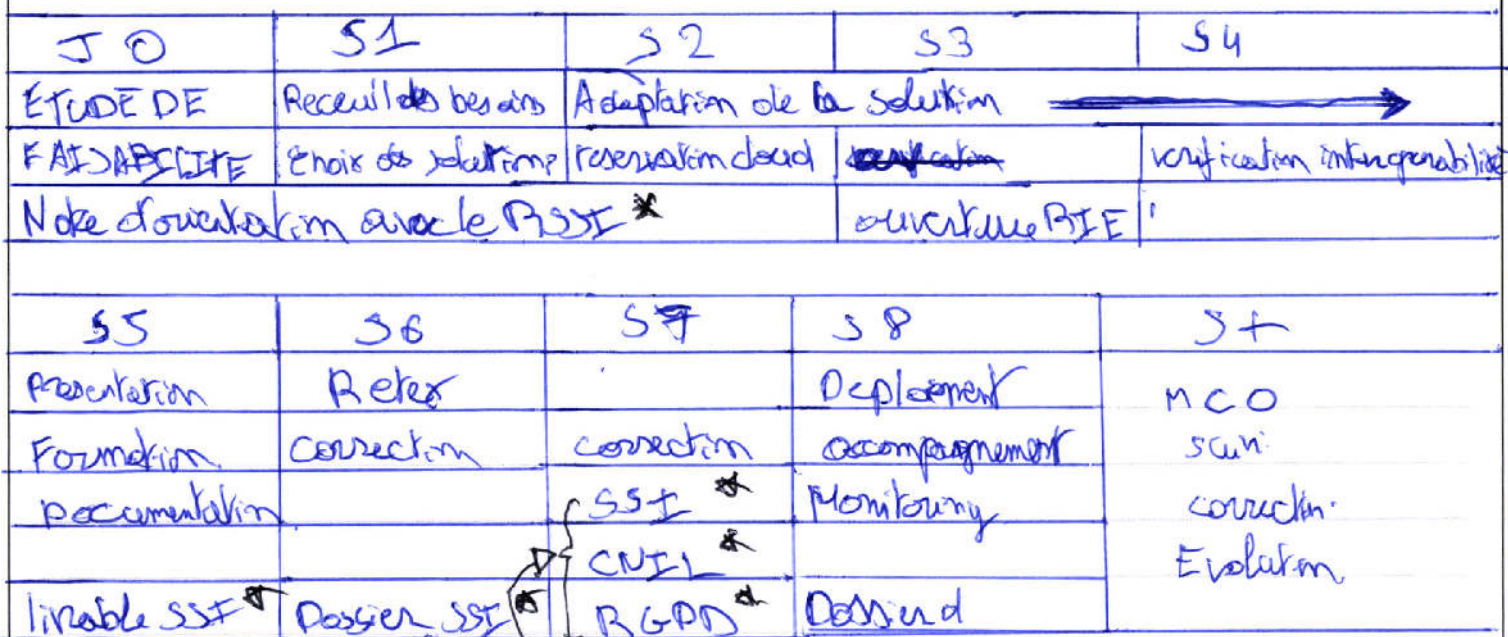 J0 S1 S2 S3 S4
ETUDE DE Receuil des besoins Adaptation de la solution
FAISABILITE choix des solutions reservation cloud verification interoperabilité
Note d'orientation avec le RSSI * ouverture RIE
S5 S6 S7 S8 S+
Presentation Retex Deploiement MCO
Formation correction correction accompagnement suivi
Documentation SSI * Monitoring correction
CNIL * Evolution
livrable SSI * Dossier SSI * RGPD * Dossier d